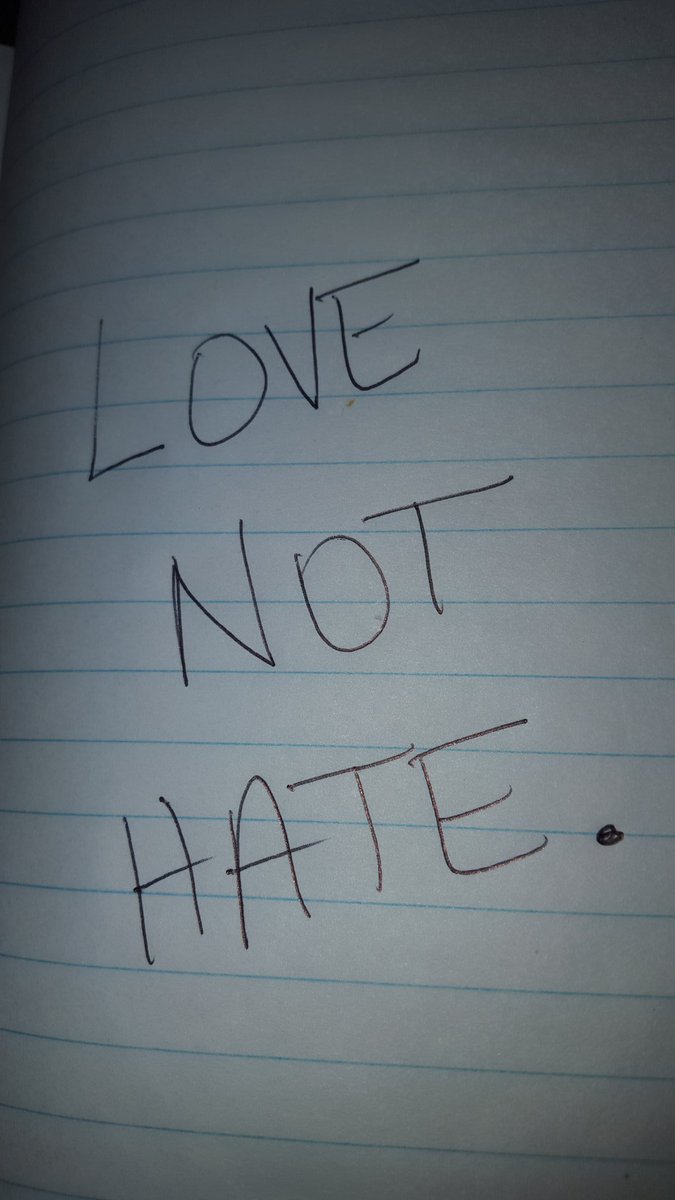 LOVE
NOT
HATE.